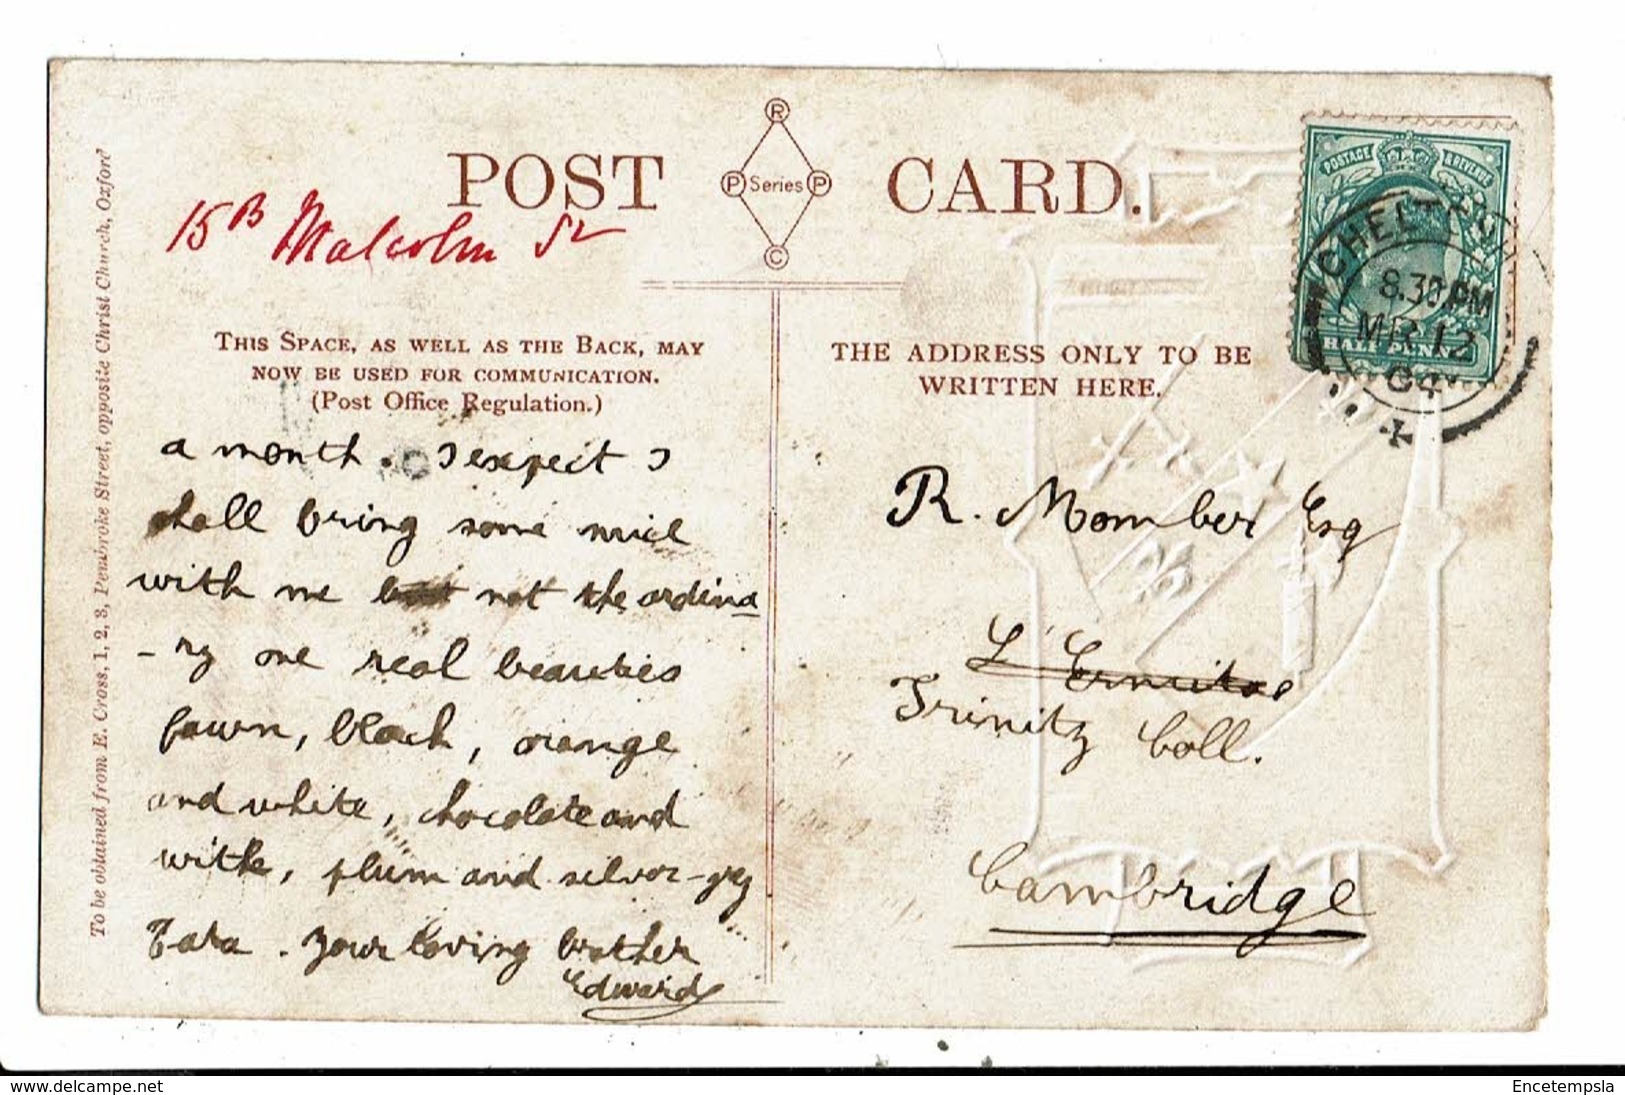 POST CARD.
R
P Series P
C
15B Malcolm St
THIS SPACE, AS WELL AS THE BACK, MAY
NOW BE USED FOR COMMUNICATION.
(Post Office Regulation.)
a month. I expect I
shall bring some mice
with me but not the ordina
-ry one real beauties
fawn, black, orange
and white, chocolate and
withe, plum and silver-grey
Tata. Your loving brother
Edward
To be obtained from E. Cross, 1, 2, 3, Pembroke Street, opposite Christ Church, Oxford
POSTAGE & REVENUE
HALF PENNY
CHELTEN
8.30 PM
MR 12
04
THE ADDRESS ONLY TO BE
WRITTEN HERE.
R. Momber Esq
L'Ermitage
Trinity Coll.
Cambridge
www.delcampe.net
Encetempsla